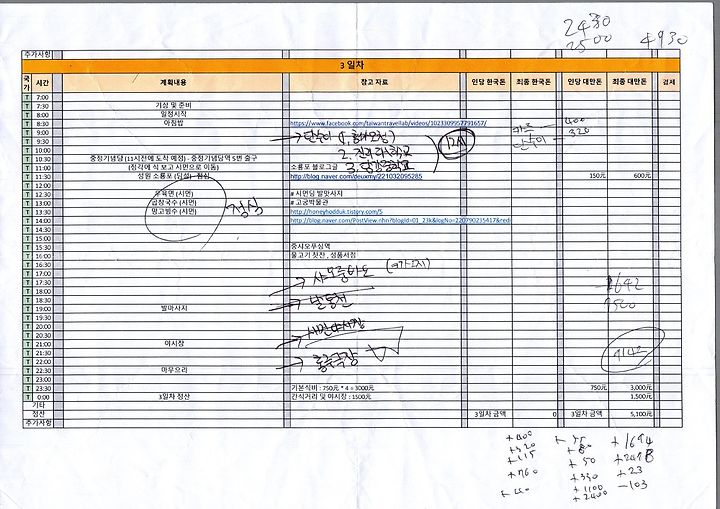 2430
2500
4930
추가사항
3 일차
국가 시간 계획내용 참고 자료 인당 한국돈 최종 한국돈 인당 대만돈 최종 대만돈 결제
T 7:00
T 7:30 기상 및 준비
T 8:00 일정시작
T 8:30 아침밥 https://www.facebook.com/taiwantravellab/videos/1023309957791657/
400
T 9:00
T 9:30 → 단수이 (1, 홍마오청) 320
T 10:00 2. 진리대학교
T 10:30 중정기념당 (11시전에 도착 예정) - 중정기념당역 5번 출구
T 11:00 (정각에 식 보고 시먼으로 이동) 소룡포 블로그글 3. 담강중학교
T 11:30 성원 소룡포 (딤섬) 점심 http://blog.naver.com/deuxmy/221032095285 150元 600元
T 12:00
T 12:30 우육면 (시먼) # 시먼딩 발마사지
T 13:00 곱창국수 (시먼) # 고궁박물관
T 13:30 망고빙수 (시먼) http://honeyhodduk.tistory.com/5
점심
T 14:00 http://blog.naver.com/PostView.nhn?blogId=01_23k&logNo=220790235417&redi
T 14:30
T 15:00
T 15:30 중샤오푸싱역
T 16:00 물고기 찻잔, 성품서점
T 16:30
T 17:00
T 17:30
T 18:00
T 18:30
T 19:00 발마사지
T 19:30
T 20:00
T 20:30
T 21:00 야시장
T 21:30
T 22:00
T 22:30 마무으리
T 23:00
T 23:30 기본식비 : 750元 * 4 = 3000元 750元 3,000元
T 0:00 3일차 정산 간식거리 및 야시장 : 1500元 1,500元
기타
정산 3일차 금액 0 3일차 금액 5,100元
추가사항
+400
+320
+115
+760
+50
+330
+1100
+2400
+1694
+23
-103